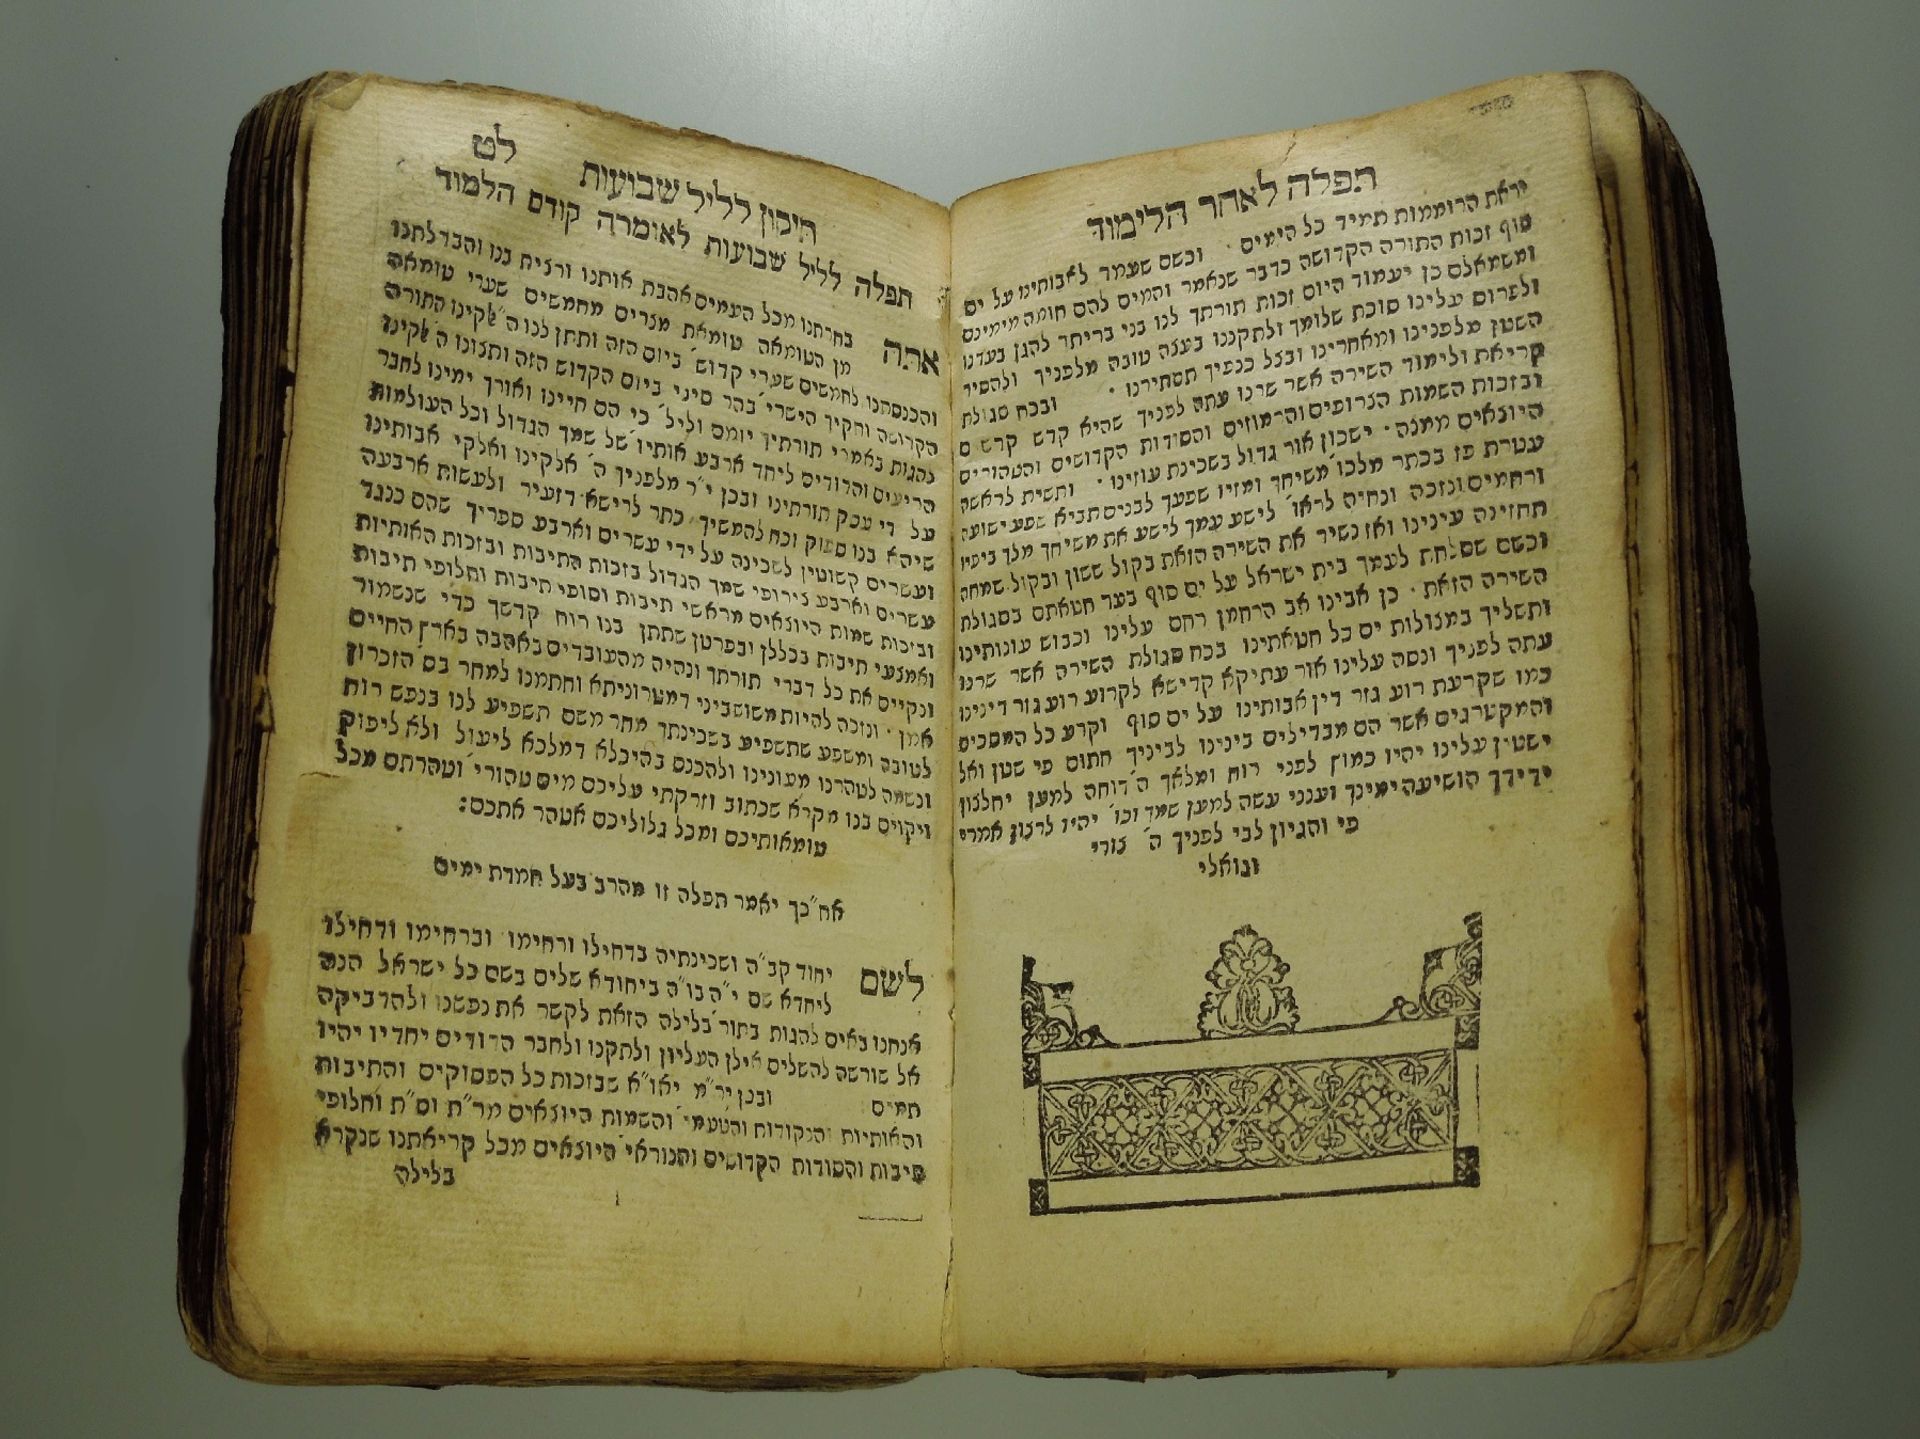 תפלה לאחר הלימוד
יראת הרוממות תמיד כל הימים · וכשם שעמד לאבותינו על ים
סוף זכות התורה הקדושה כדבר שנאמר והמים להם חומה מימינם
ומשמאלם כן יעמוד היום זכות תורתך לנו בני בריתך להגן בעדנו
ולפרוס עלינו סוכת שלומך ולתקננו בעצה טובה מלפניך ולהסיר
השטן מלפנינו ומאחרינו ובצל כנפיך תסתירנו · ובכח סגולת
קריאת ולימוד השירה אשר שרנו עתה לפניך שהיא קדש קדשים
ובזכות השמות הצרופים והרמוזים והסודות הקדושים והטהורים
היוצאים ממנה · ישכון אור גדול בשכינת עוזינו · ותשית לראשה
עטרת פז בכתר מלכו׳ משיחך ומזיו שפעך לבנים תביא שפע ישועה
ורחמים ונזכה ונחיה לראו׳ לישע עמך לישע את משיחך מלך ביפיו
תחזינה עינינו ואז נשיר את השירה הזאת בקול ששון ובקול שמחה
וכשם שסלחת לעמך בית ישראל על ים סוף בעד חטאתם בסגולת
השירה הזאת · כן אבינו אב הרחמן רחם עלינו וכבוש עונותינו
ותשליך במצולות ים כל חטאתינו בכח סגולת השירה אשר שרנו
עתה לפניך ונסה עלינו אור עתיקא קדישא לקרוע רוע גזר דינינו
כמו שקרעת רוע גזר דין אבותינו על ים סוף וקרע כל המסכים
והמקטרגים אשר הם מבדילים בינינו לביניך חתום פי שטן ואל
ישטין עלינו יהיו כמוץ לפני רוח ומלאך ה׳ דוחה למען יחלצון
ידידך הושיעה ימינך וענני עשה למען שמך וכו׳ יהיו לרצון אמרי
פי והגיון לבי לפניך ה׳ צורי
וגואלי
תיקון לליל שבועות לט
תפלה לליל שבועות לאומרה קודם הלמוד
אתה בחרתנו מכל העמים אהבת אותנו ורצית בנו והבדלתנו
מן הטומאה טומאת מצרים מחמשים שערי טומאה
והכנסתנו לחמשים שערי קדוש׳ ביום הזה ותתן לנו ה״אלקינו התורה
הקדושה וחקיך הישרי׳ בהר סיני ביום הקדוש הזה ותצונו ה׳ אלקינו
להגות באמרי תורתיך יומם וליל׳ כי הם חיינו ואורך ימינו לחבר
הריעים והדודים ליחד ארבע אותיו׳ של שמך הגדול וכל העולמות
על די עסק תורתינו ובכן י״ר מלפניך ה׳ אלקינו ואלקי אבותינו
שיהא בנו ספוק וכח להמשיך כתר לרישא דזעיר ולעשות ארבעה
ועשרים קשוטין לשכינה על ידי עשרים וארבע ספריך שהם כנגד
עשרים וארבע צירופי שמך הגדול בזכות התיבות ובזכות האותיות
ובזכות שמות היוצאים מראשי תיבות וסופי תיבות וחלופי תיבות
ואמצעי תיבות בכללן ובפרטן שתתן בנו רוח קדשך כדי שנשמור
ונקיים את כל דברי תורתך ונהיה מהעובדים באהבה בארץ החיים
אמן · ונזכה להיות משושביני דמטרוניתא וחתמנו למחר בס׳ הזכרון
לטובה ומשפע שתשפיע בשכינתך מחר משם תשפיע לנו בנפש רוח
ונשמה לטהרנו מעונינו ולהכנס בהיכלא דמלכא ליעול ולא ליפוק
ויקוים בנו מקרא שכתוב וזרקתי עליכם מים טהורי׳ וטהרתם מכל
טומאותיכם ומכל גלוליכם אטהר אתכם:
אח״כך יאמר תפלה זו מהרב בעל חמדת ימים
לשם יחוד קב״ה ושכינתיה בדחילו ורחימו וברחימו ודחילו
ליחדא שם י״ה בו״ה ביחודא שלים בשם כל ישראל הנה
אנחנו באים להגות בתור׳ בלילה הזאת לקשר את נפשנו ולהדביקה
אל שורשה להשלים אילן העליון ולתקנו ולחבר הדודים יחדיו יהיו
תמים ובכן יר״מ יאו״א שבזכות כל הפסוקים והתיבות
והאותיות והנקודות והטעמי׳ והשמות היוצאים מר״ת וס״ת וחלופי
תיבות והסודות הקדושים והנוראי׳ היוצאים מכל קריאתנו שנקרא
בלילה